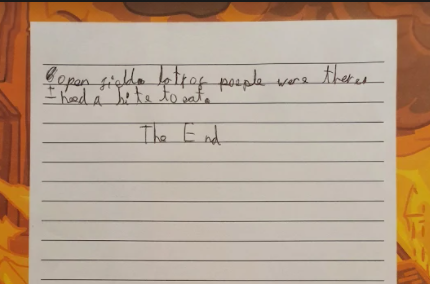 open field. lots of people were there.
I had a bite to eat.
The End